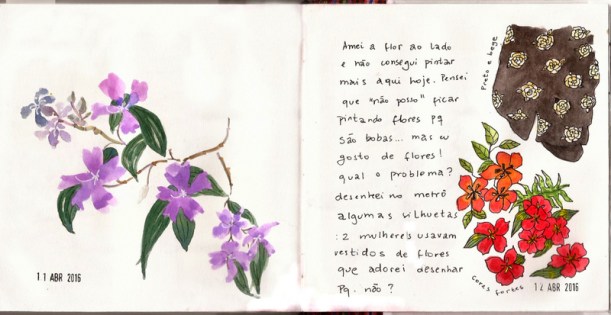 11 ABR 2016
Amei a flor ao lado
e não consegui pintar
mais aqui hoje. Pensei
que "não posso" ficar
pintando flores pq
são bobas... mas eu
gosto de flores!
qual o problema?
desenhei no metrô
algumas silhuetas
: 2 mulheres usavam
vestidos de flores
que adorei desenhar
pq. não?
Preto e bege
cores fortes
12 ABR 2016